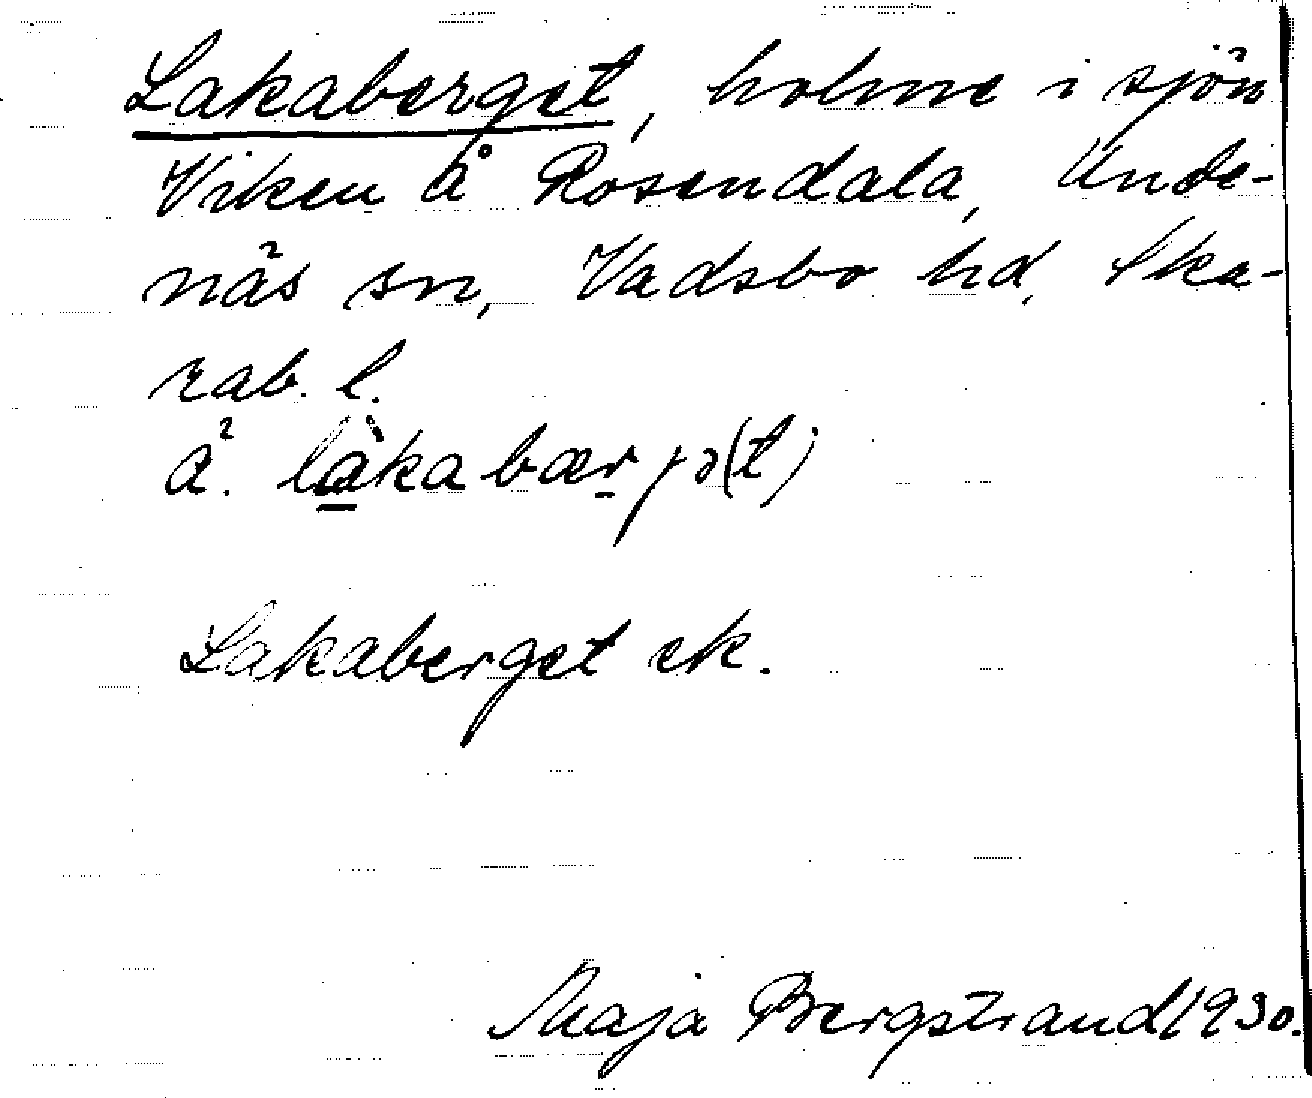 Lakaberget, holme i sjön
Viken å Rosendala, Unde-
näs sn, Vadsbo hd, Ska-
rab. l.
a². làkabærjə(t)
Lakaberget ek.
Maja Bergstrand 1930.